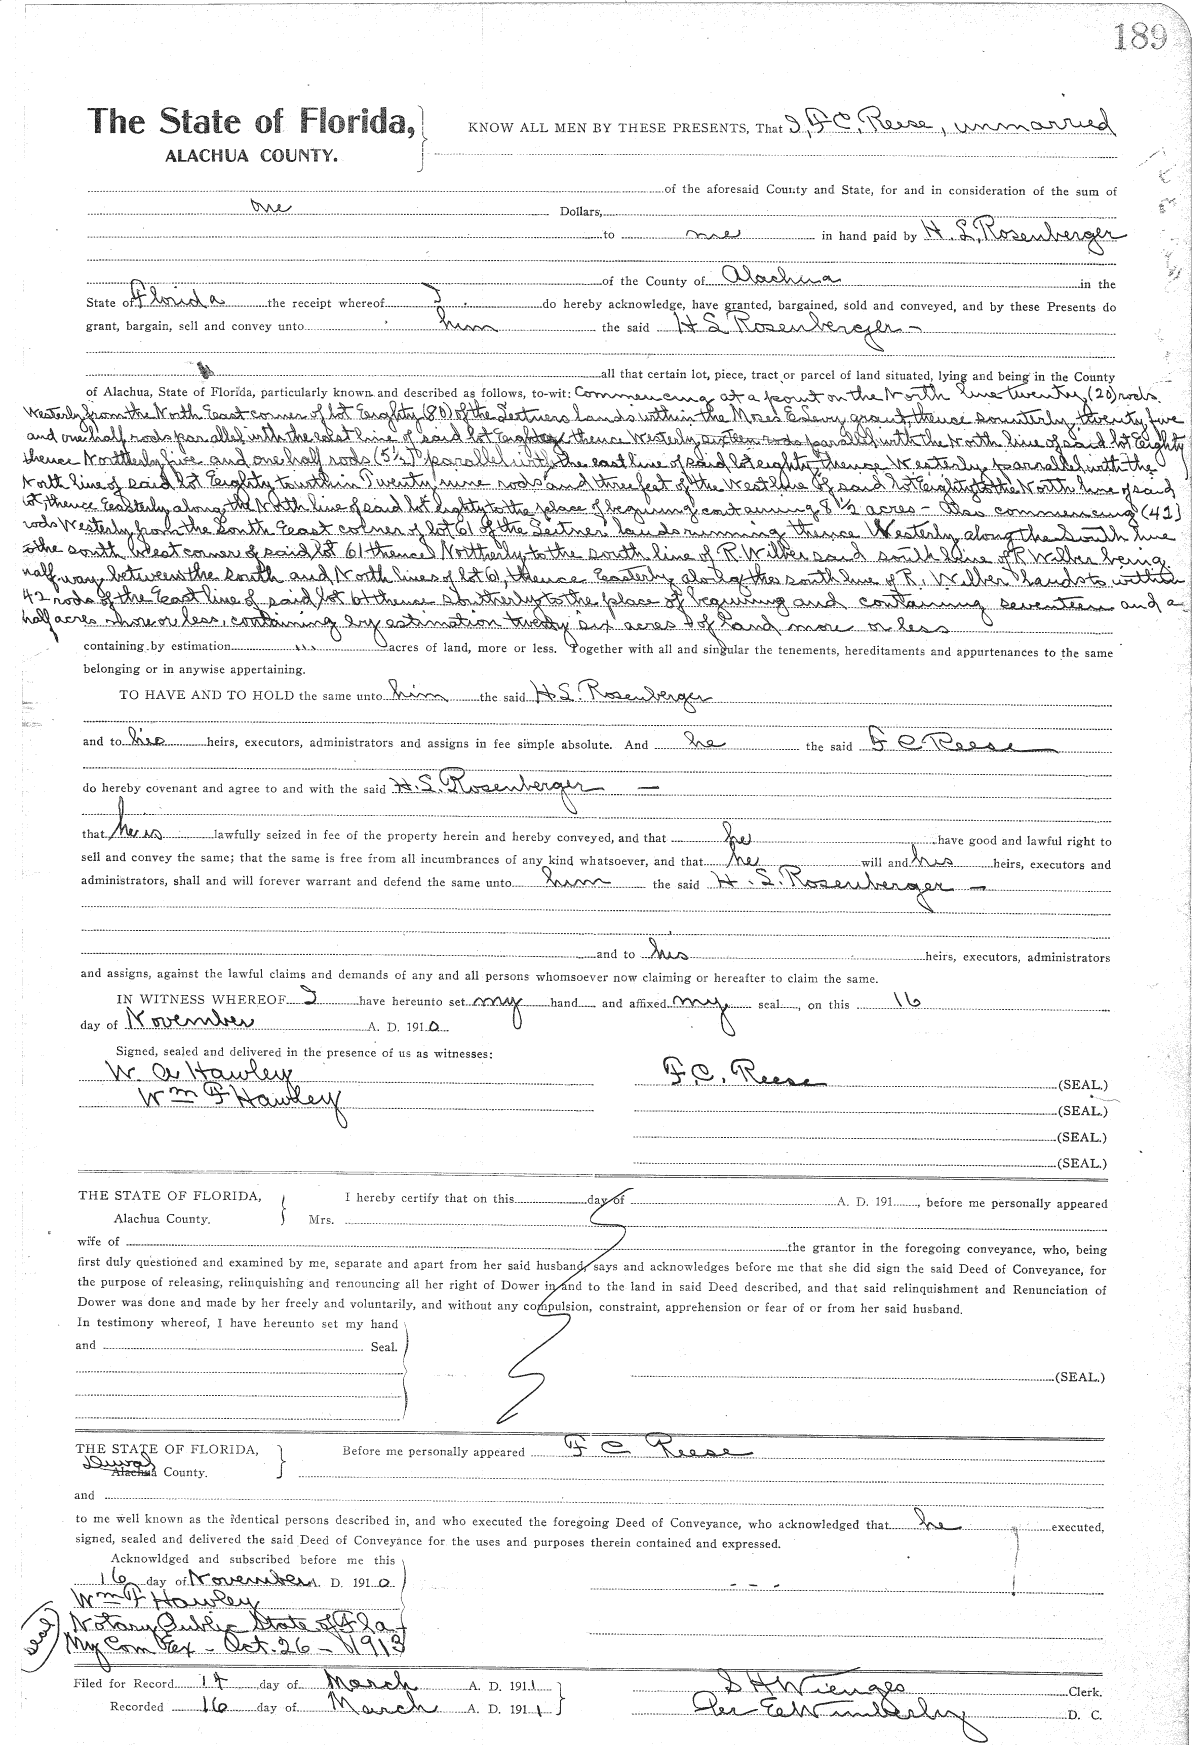 189
The State of Florida, KNOW ALL MEN BY THESE PRESENTS, That I, F C, Reese, unmarried
ALACHUA COUNTY.
of the aforesaid County and State, for and in consideration of the sum of
one Dollars,
to me in hand paid by H. S, Rosenberger
of the County of Alachua in the
State of Florida the receipt whereof I do hereby acknowledge, have granted, bargained, sold and conveyed, and by these Presents do
grant, bargain, sell and convey unto him the said H S Rosenberger –
all that certain lot, piece, tract or parcel of land situated, lying and being in the County
of Alachua, State of Florida, particularly known and described as follows, to-wit: Commencing at a point on the North line twenty (20) rods
Westerly from the North East corner of lot Eighty (80) of the lands within the Moses E Levy grant, thence twenty five
and one half rods parallel with the east line of said lot Eighty thence Westerly sixteen rods parallel with the North line of said lot Eighty
thence Northerly five and one half rods (5½) parallel with the east line of said lot eighty, thence Westerly parallel with the
North line of said lot Eighty to within Twenty nine rods and three feet of the West line of said lot Eighty to the North line of said
lot, thence Easterly along the North line of said lot eighty to the place of containing 8½ acres – Also commencing (42)
rods Westerly from the South East corner of lot 61 of the Seitner lands running thence Westerly along the South line
to the south West corner of said lot 61 thence Northerly to the south line of R. Wilber said south line of R. Wilber being
half way between the south and North lines of lot 61, thence Easterly along the south line of R. Wilber lands to within
42 rods of the East line of said lot 61 thence to the place of and containing seventeen and a
half acres more or less, containing by estimation twenty six acres of land more or less
containing by estimation acres of land, more or less. Together with all and singular the tenements, hereditaments and appurtenances to the same
belonging or in anywise appertaining.
TO HAVE AND TO HOLD the same unto him the said H S. Rosenberger
and to his heirs, executors, administrators and assigns in fee simple absolute. And he the said F C Reese
do hereby covenant and agree to and with the said H. S. Rosenberger –
that he is lawfully seized in fee of the property herein and hereby conveyed, and that he have good and lawful right to
sell and convey the same; that the same is free from all incumbrances of any kind whatsoever, and that he will and his heirs, executors and
administrators, shall and will forever warrant and defend the same unto him the said H. S. Rosenberger –
and to his heirs, executors, administrators
and assigns, against the lawful claims and demands of any and all persons whomsoever now claiming or hereafter to claim the same.
IN WITNESS WHEREOF I have hereunto set my hand and affixed my seal, on this 16
day of November A. D. 1910
Signed, sealed and delivered in the presence of us as witnesses:
W. A Hawley F. C. Reese (SEAL.)
Wm F Hawley (SEAL.)
(SEAL.)
(SEAL.)
THE STATE OF FLORIDA, I hereby certify that on this day of A. D. 191, before me personally appeared
Alachua County. Mrs.
wife of the grantor in the foregoing conveyance, who, being
first duly questioned and examined by me, separate and apart from her said husband, says and acknowledges before me that she did sign the said Deed of Conveyance, for
the purpose of releasing, relinquishing and renouncing all her right of Dower in and to the land in said Deed described, and that said relinquishment and Renunciation of
Dower was done and made by her freely and voluntarily, and without any compulsion, constraint, apprehension or fear of or from her said husband.
In testimony whereof, I have hereunto set my hand
and Seal.
(SEAL.)
THE STATE OF FLORIDA, Before me personally appeared F C Reese
Duval
Alachua County.
and
to me well known as the identical persons described in, and who executed the foregoing Deed of Conveyance, who acknowledged that he executed,
signed, sealed and delivered the said Deed of Conveyance for the uses and purposes therein contained and expressed.
Acknowldged and subscribed before me this
16 day of November A. D. 1910
Wm F Hawley
Notary Public State of Fla
(Seal) My Com Ex – Oct. 26 – 1913
Filed for Record 14 day of March A. D. 1911 S H Wienges Clerk.
Recorded 16 day of March A. D. 1911 Per E Wimberly D. C.